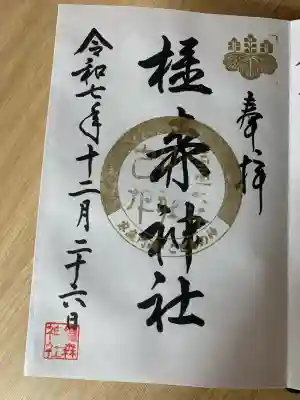 奉拝
椙森神社
令和七年十二月二十六日